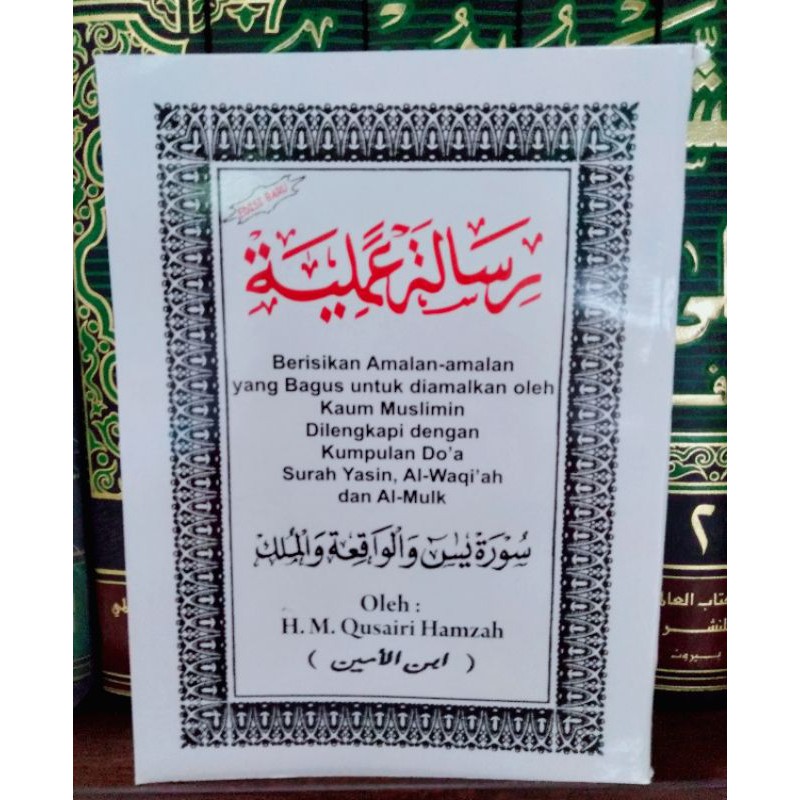 EDISI BARU
رِسَالَة عَمَلِيَّة
Berisikan Amalan-amalan
yang Bagus untuk diamalkan oleh
Kaum Muslimin
Dilengkapi dengan
Kumpulan Do'a
Surah Yasin, Al-Waqi'ah
dan Al-Mulk
سُوْرَة يٰسٓ وَالْوَاقِعَة وَالْمُلْك
Oleh :
H. M. Qusairi Hamzah
( ابن الأمين )
٢
بيروت